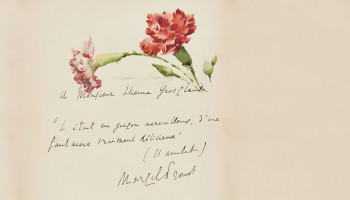 A Monsieur Etienne Grosclaude
"C'était un garçon merveilleux, d'une
fantaisie vraiment délicieuse"
(Hamlet)
Marcel Proust